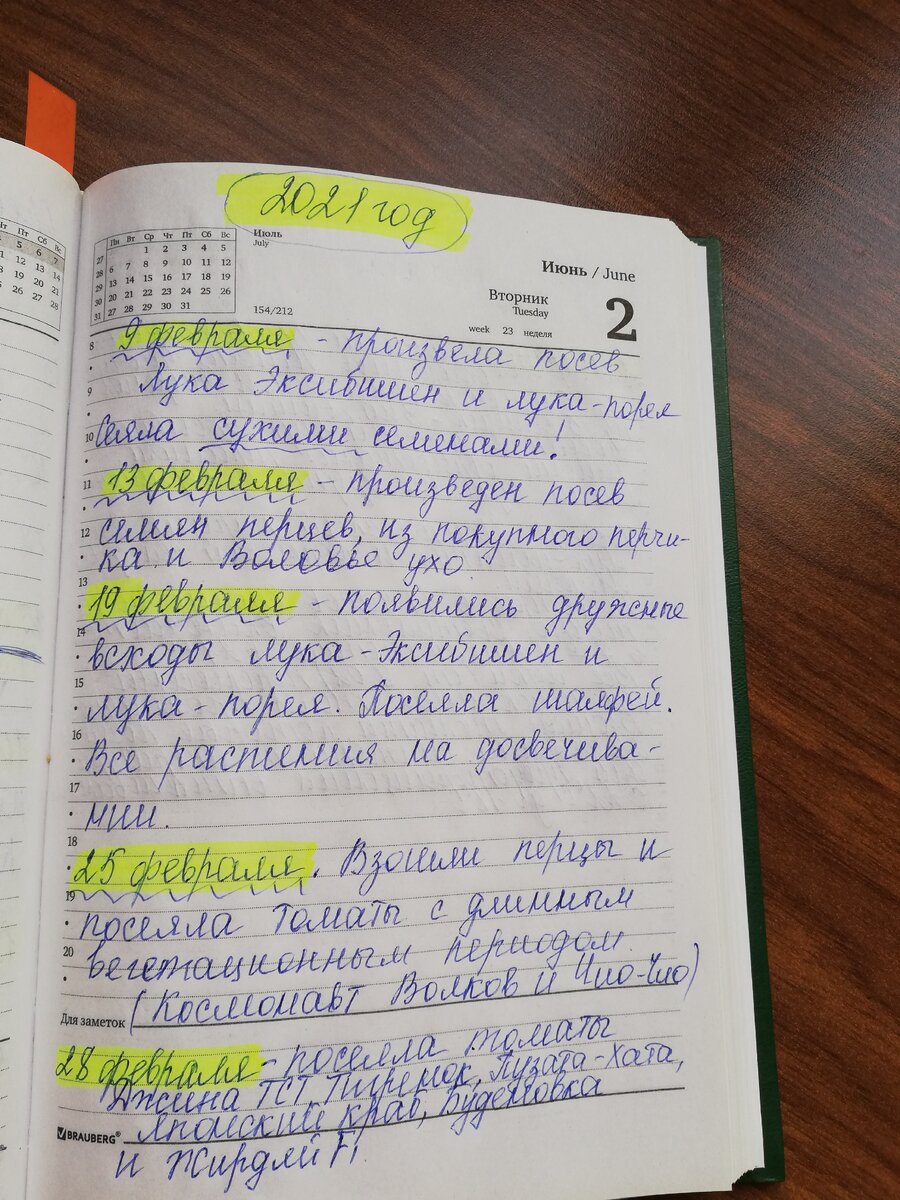 2021 год
Июль
July
Пн Вт Ср Чт Пт Сб Вс
27 1 2 3 4 5
28 6 7 8 9 10 11 12
29 13 14 15 16 17 18 19
30 20 21 22 23 24 25 26
31 27 28 29 30 31
154/212
Июнь / June
Вторник
Tuesday
week 23 неделя
2
8 9 февраля - произвела посев
9 Лука Эксибишен и лука-порея
10 Сеяла сухими семенами!
11 13 февраля - произведен посев
12 семян перцев, из покупного перчи-
ка и Воловье ухо
13
19 февраля - появились дружные
14
всходы лука-Эксибишен и
15
лука-порея. Посеяла шалфей.
16
Все растения на досвечива-
17
нии.
18
25 февраля. Взошли перцы и
19
посеяла томаты с длинным
20
вегетационным периодом
(Космонавт Волков и Чио-Чио)
Для заметок
28 февраля - посеяла томаты
Джина ТСТ, Пиренок, Пузата-Хата,
Японский краб, Буденовка
BRAUBERG®
и Жирдяй F1.
5 6 7
12 13 14
18 19 20 21
25 26 27 28